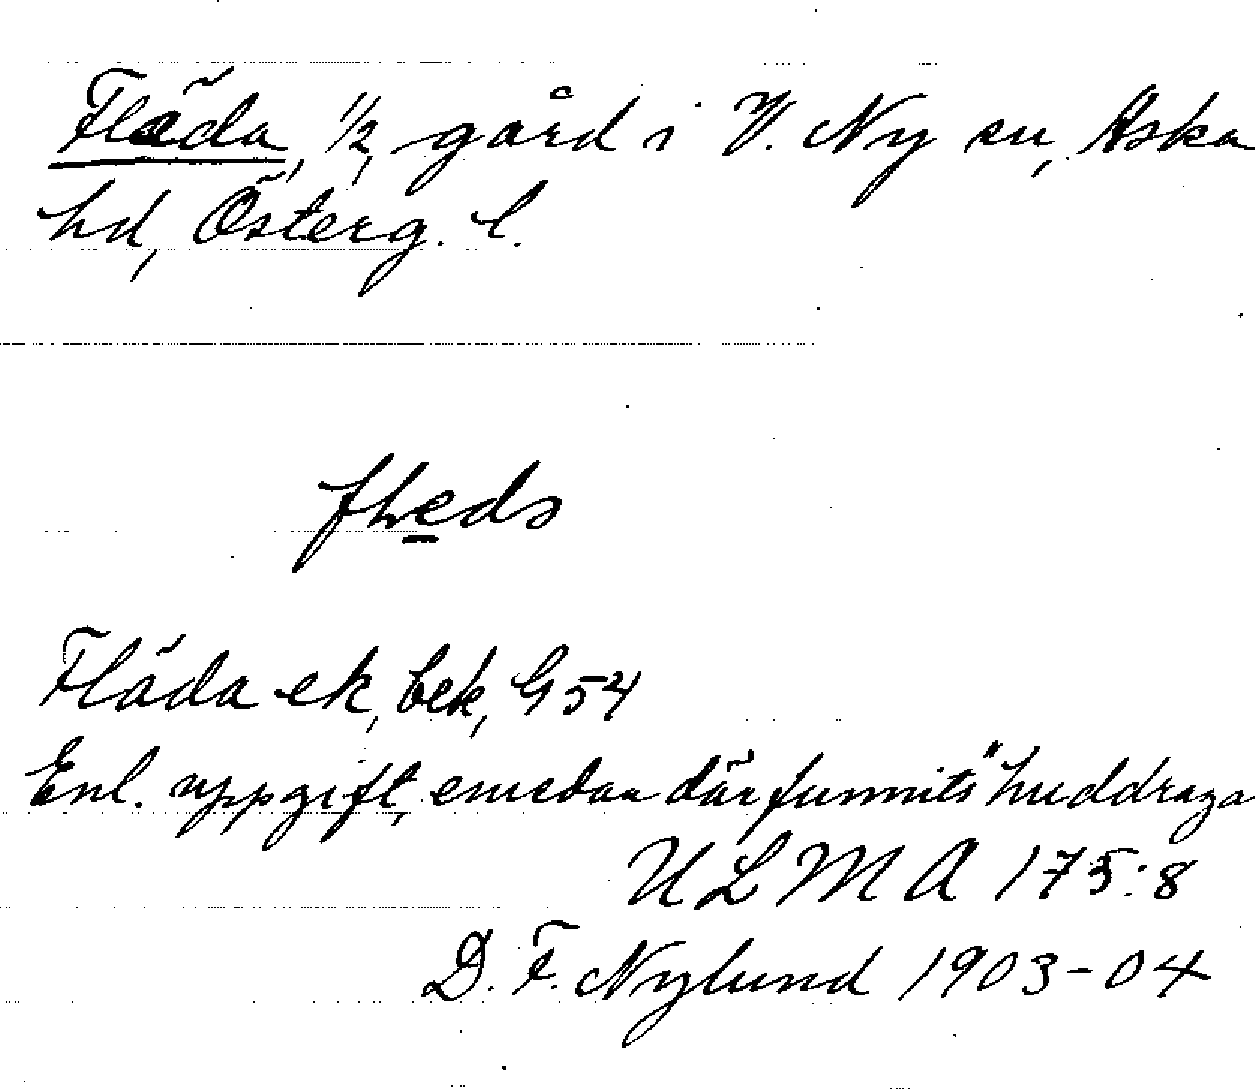 Fläda, 1/2, gård i V. Ny sn, Aska
hd, Österg. l.
fleda
Fläda ek, bek, G54
Enl. uppgift, emedan där funnits "huddraga
ULMA 175:8
D. F. Nylund 1903-04